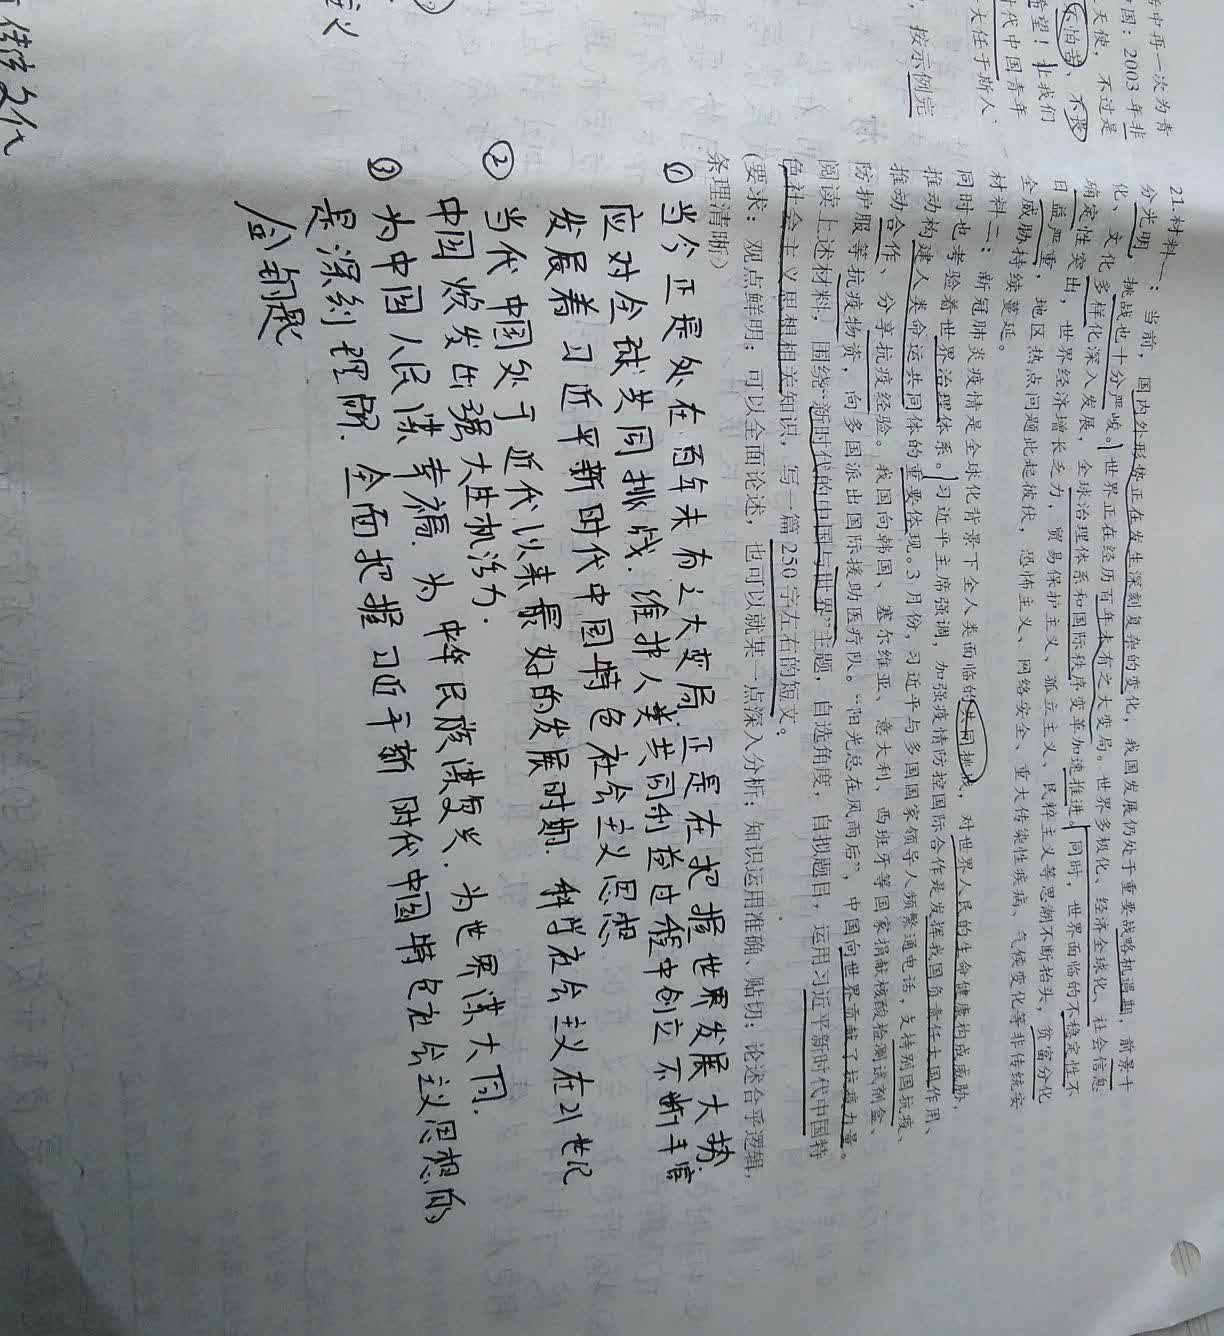 中再一次为青
国：2003年非
天使，不过是
不怕苦、不畏
希望！让我们
时代中国青年
大任于斯人，
，按示例完
21.材料一：当前，国内外形势正在发生深刻复杂的变化，我国发展仍处于重要战略机遇期，前景十
分光明，挑战也十分严峻。世界正在经历百年未有之大变局。世界多极化、经济全球化、社会信息
化、文化多样化深入发展，全球治理体系和国际秩序变革加速推进。同时，世界面临的不稳定性不
确定性突出，世界经济增长乏力，贸易保护主义、孤立主义、民粹主义等思潮不断抬头，贫富分化
日益严重，地区热点问题此起彼伏，恐怖主义、网络安全、重大传染性疾病、气候变化等非传统安
全威胁持续蔓延。
材料二：新冠肺炎疫情是全球化背景下全人类面临的共同挑战，对世界人民的生命健康构成威胁，
同时也考验着世界治理体系。习近平主席强调，加强疫情防控国际合作是发挥我国负责任大国作用、
推动构建人类命运共同体的重要体现。3月份，习近平与多国国家领导人频繁通电话，支持别国抗疫、
推动合作、分享抗疫经验。我国向韩国、塞尔维亚、意大利、西班牙等国家捐献核酸检测试剂盒、
防护服等抗疫物资，向多国派出国际援助医疗队。“阳光总在风雨后”，中国向世界贡献了抗疫力量。
阅读上述材料，围绕“新时代的中国与世界”主题，自选角度，自拟题目，运用习近平新时代中国特
色社会主义思想相关知识，写一篇250字左右的短文。
（要求：观点鲜明；可以全面论述，也可以就某一点深入分析；知识运用准确、贴切；论述合乎逻辑，
条理清晰）
① 当今正是处在百年未有之大变局.正是在把握世界发展大势.
应对全球共同挑战.维护人类共同利益过程中创立不断丰富
发展着习近平新时代中国特色社会主义思想
② 当代中国处于近代以来最好的发展时期.科学社会主义在21世纪
中国焕发出强大生机活力.
③ 为中国人民谋幸福.为中华民族谋复兴.为世界谋大同.
是深刻理解.全面把握习近平新时代中国特色社会主义思想的
金钥匙
义
传统文化